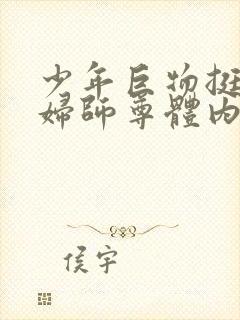 少年巨物挺
婦師尊體內
侯宇